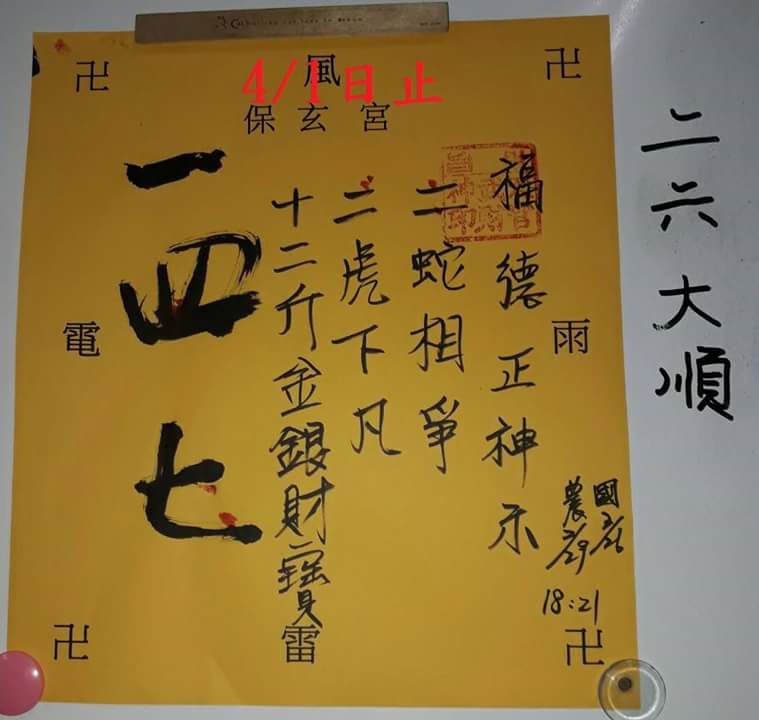 4/1日止
卍 風 卍
保玄宮
電 雨
卍 雷 卍
二六大順
國3/26
農2/29
18:21
福德正神示
二蛇相爭
二虎下凡
十二斤金銀財寶
一四七